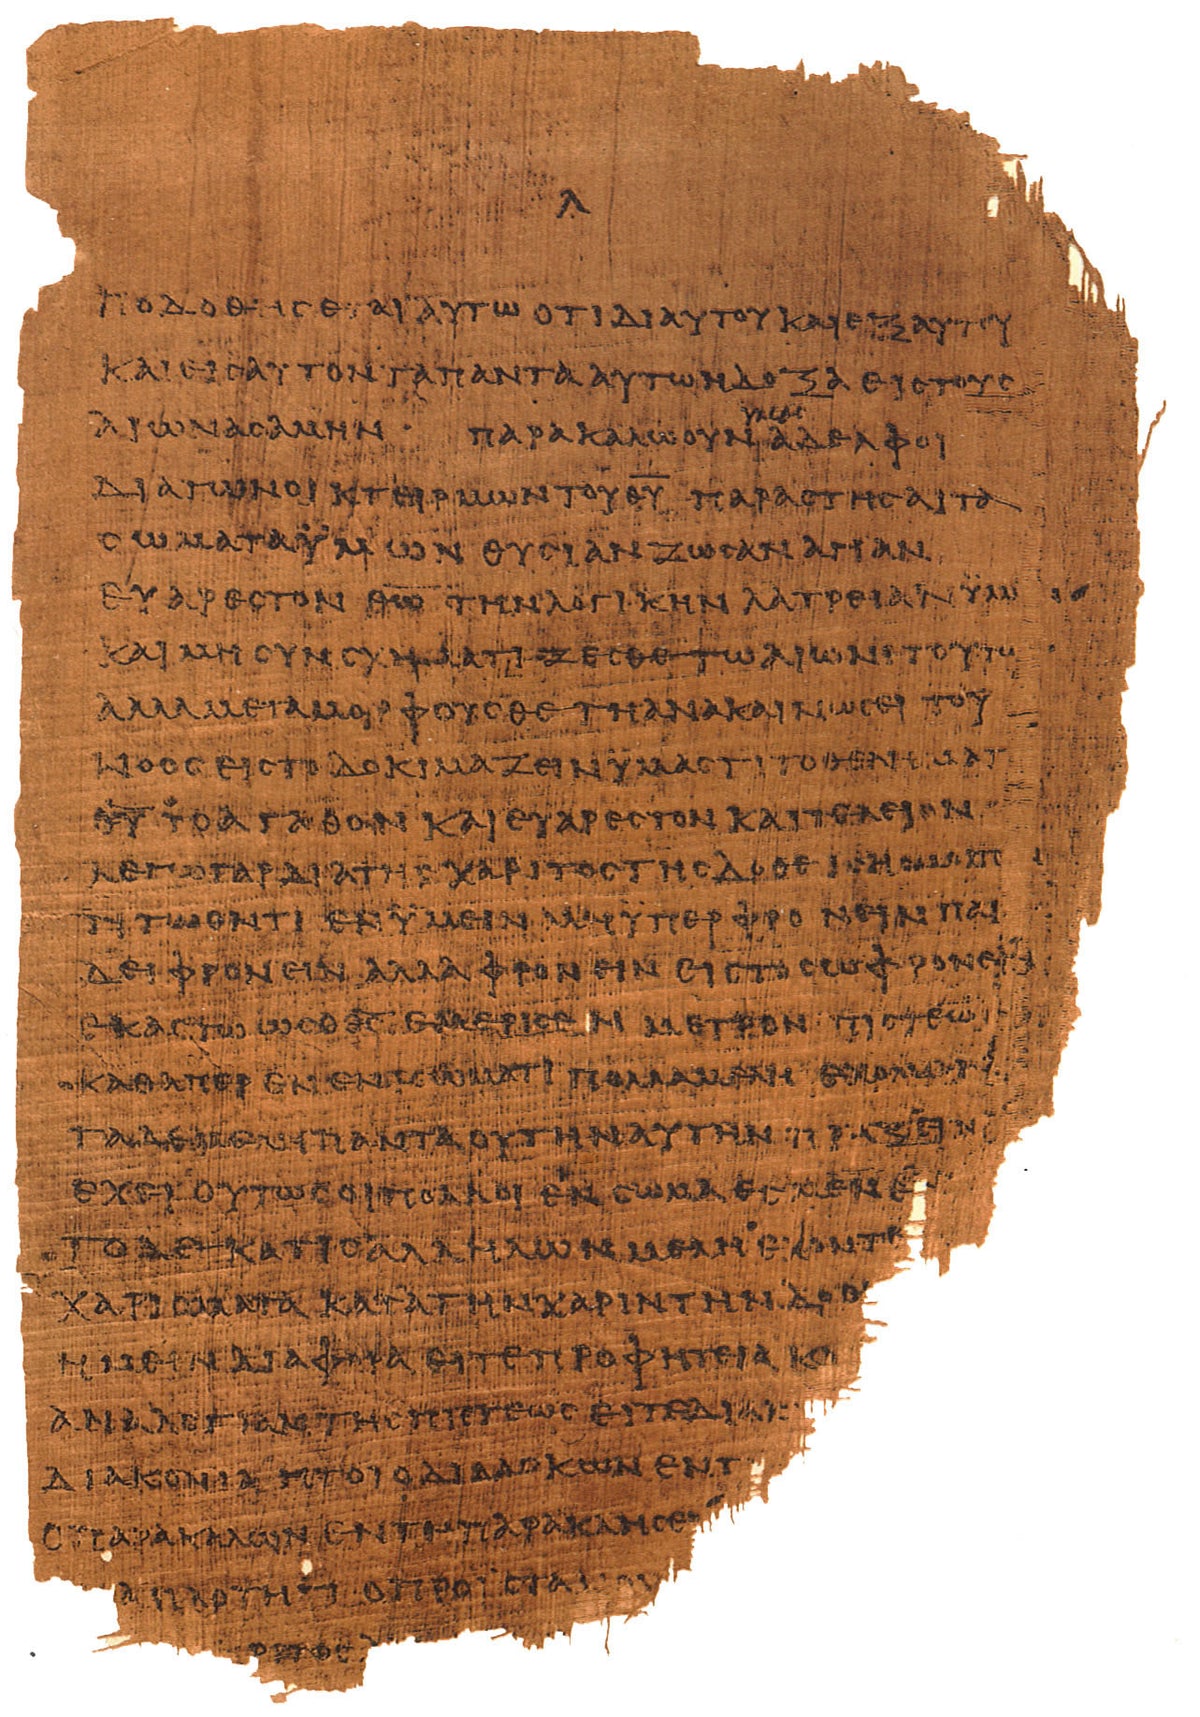 λ
ποδοθησεται αυτω οτι δι αυτου και εξ αυτου
και εις αυτον τα παντα αυτω η δοξα εις τους
αιωνας αμην · παρακαλω ουν υμας αδελφοι
δια των οικτειρμων του θ̅υ̅ παραστησαι τα
σωματα ϋμων θυσιαν ζωσαν αγιαν
ευαρεστον θ̅ω̅ την λογικην λατρειαν ϋμω
και μη συνσχηματιζεσθε τω αιωνι τουτω
αλλα μεταμορφουσθε τη ανακαινωσει του
νοος εις το δοκιμαζειν ϋμας τι το θελημα τ
θ̅υ̅ το αγαθον και ευαρεστον και τελειον
λεγω γαρ δια της χαριτος της δοθεισης
τω οντι εν ϋμειν μη ϋπερφρονειν παρ
δει φρονειν αλλα φρονειν εις το σωφρονειν
εκαστω ως ο θ̅ς̅ εμερισεν μετρον πιστεως
καθαπερ εν ενι σωματι πολλα μελη
τα δε μελη παντα ου την αυτην πραξιν
εχει ουτως οι πολλοι εν σωμα εσμεν εν
το δε κατ ις αλληλων μελη εχοντ
χαρισματα κατα την χαριν την δο
ημειν διαφορα ειτε προφητεια κα
αναλογιαν της πιστεως ειτε δια
διακονια ητοι ο διδασκων εν τ
ο παρακαλων εν τη παρακλησε
απλοτητι ο προϊσταμ